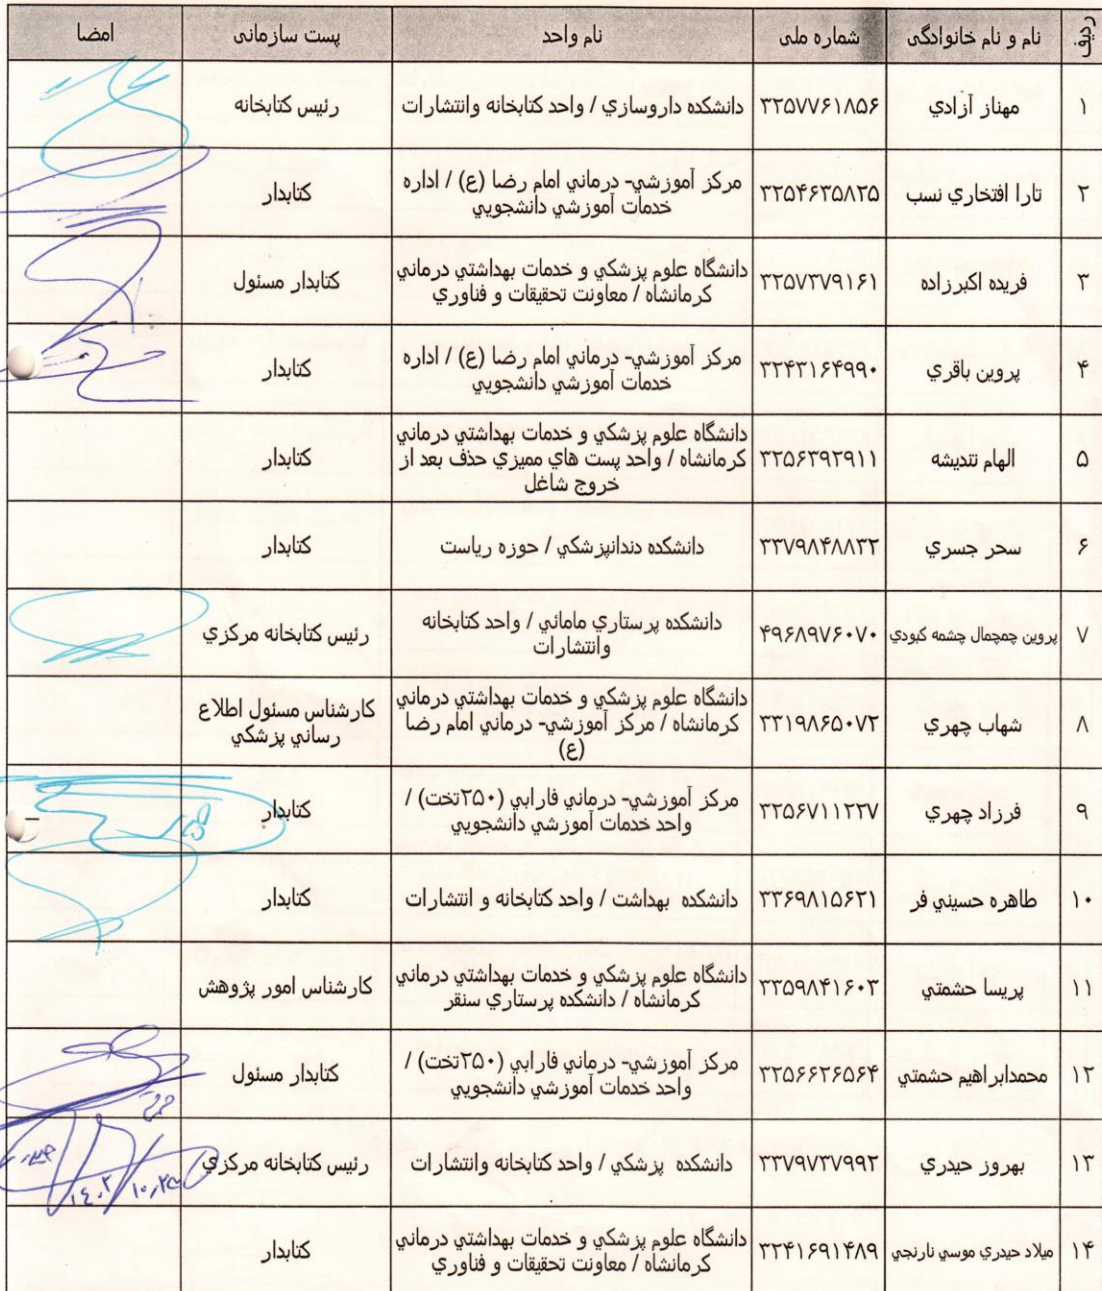 ردیف نام و نام خانوادگی شماره ملی نام واحد پست سازمانی امضا
۱ مهناز آزادي ۳۲۵۷۷۶۱۸۵۶ دانشکده داروسازي / واحد کتابخانه وانتشارات رئیس کتابخانه
۲ تارا افتخاري نسب ۳۲۵۴۶۳۵۸۲۵ مرکز آموزشي- درماني امام رضا (ع) / اداره
خدمات آموزشي دانشجويي کتابدار
۳ فریده اکبرزاده ۳۲۵۷۳۷۹۱۶۱ دانشگاه علوم پزشکي و خدمات بهداشتي درماني
کرمانشاه / معاونت تحقیقات و فناوري کتابدار مسئول
۴ پروین باقري ۳۲۴۳۱۶۴۹۹۰ مرکز آموزشي- درماني امام رضا (ع) / اداره
خدمات آموزشي دانشجويي کتابدار
۵ الهام تندیشه ۳۲۵۶۳۹۲۹۱۱ دانشگاه علوم پزشکي و خدمات بهداشتي درماني
کرمانشاه / واحد پست هاي مميزي حذف بعد از
خروج شاغل کتابدار
۶ سحر جسري ۳۳۷۹۸۴۸۸۳۲ دانشکده دندانپزشکي / حوزه ریاست کتابدار
۷ پروین چمچمال چشمه کبودي ۴۹۶۸۹۷۶۰۷۰ دانشکده پرستاري مامائي / واحد کتابخانه
وانتشارات رئیس کتابخانه مرکزي
۸ شهاب چهري ۳۳۱۹۸۶۵۰۷۲ دانشگاه علوم پزشکي و خدمات بهداشتي درماني
کرمانشاه / مرکز آموزشي- درماني امام رضا
(ع) کارشناس مسئول اطلاع
رساني پزشکي
۹ فرزاد چهري ۳۲۵۶۷۱۱۲۲۷ مرکز آموزشي- درماني فارابي (۲۵۰تخت) /
واحد خدمات آموزشي دانشجويي کتابدار
۱۰ طاهره حسیني فر ۳۳۶۹۸۱۵۶۲۱ دانشکده بهداشت / واحد کتابخانه و انتشارات کتابدار
۱۱ پریسا حشمتي ۳۳۵۹۸۴۱۶۰۳ دانشگاه علوم پزشکي و خدمات بهداشتي درماني
کرمانشاه / دانشکده پرستاري سنقر کارشناس امور پژوهش
۱۲ محمدابراهیم حشمتي ۳۲۵۶۶۲۶۵۶۴ مرکز آموزشي- درماني فارابي (۲۵۰تخت) /
واحد خدمات آموزشي دانشجويي کتابدار مسئول
۱۳ بهروز حیدري ۳۳۷۹۷۳۷۹۹۲ دانشکده پزشکي / واحد کتابخانه وانتشارات رئیس کتابخانه مرکزي
۱۴ میلاد حیدري موسي نارنجي ۳۲۴۱۶۹۱۴۸۹ دانشگاه علوم پزشکي و خدمات بهداشتي درماني
کرمانشاه / معاونت تحقیقات و فناوري کتابدار